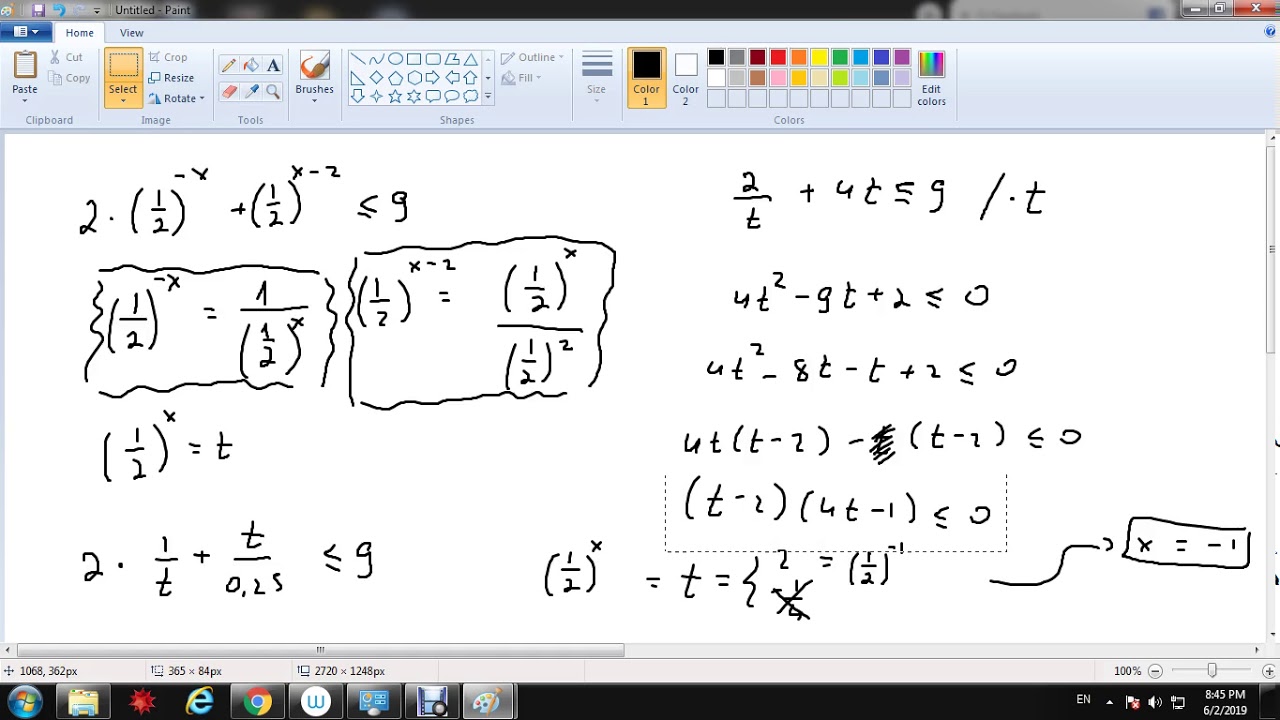 Untitled - Paint
Home View
Paste
Cut
Copy
Clipboard
Select
Crop
Resize
Rotate
Image
Tools
Brushes
Outline
Fill
Shapes
Size
Color 1
Color 2
Edit colors
Colors
2 · (1/2)^(-x) + (1/2)^(x-2) ≤ 9
(1/2)^(-x) = 1/(1/2)^x
(1/2)^(x-2) = (1/2)^x/(1/2)^2
(1/2)^x = t
2 · 1/t + t/0,25 ≤ 9
2/t + 4t ≤ 9 / · t
4t^2 - 9t + 2 ≤ 0
4t^2 - 8t - t + 2 ≤ 0
4t(t-2) - (t-2) ≤ 0
(t-2)(4t-1) ≤ 0
(1/2)^x = t = { 2 = (1/2)^-1
x = -1
1068, 362px
365 × 84px
2720 × 1248px
100%
EN
8:45 PM
6/2/2019